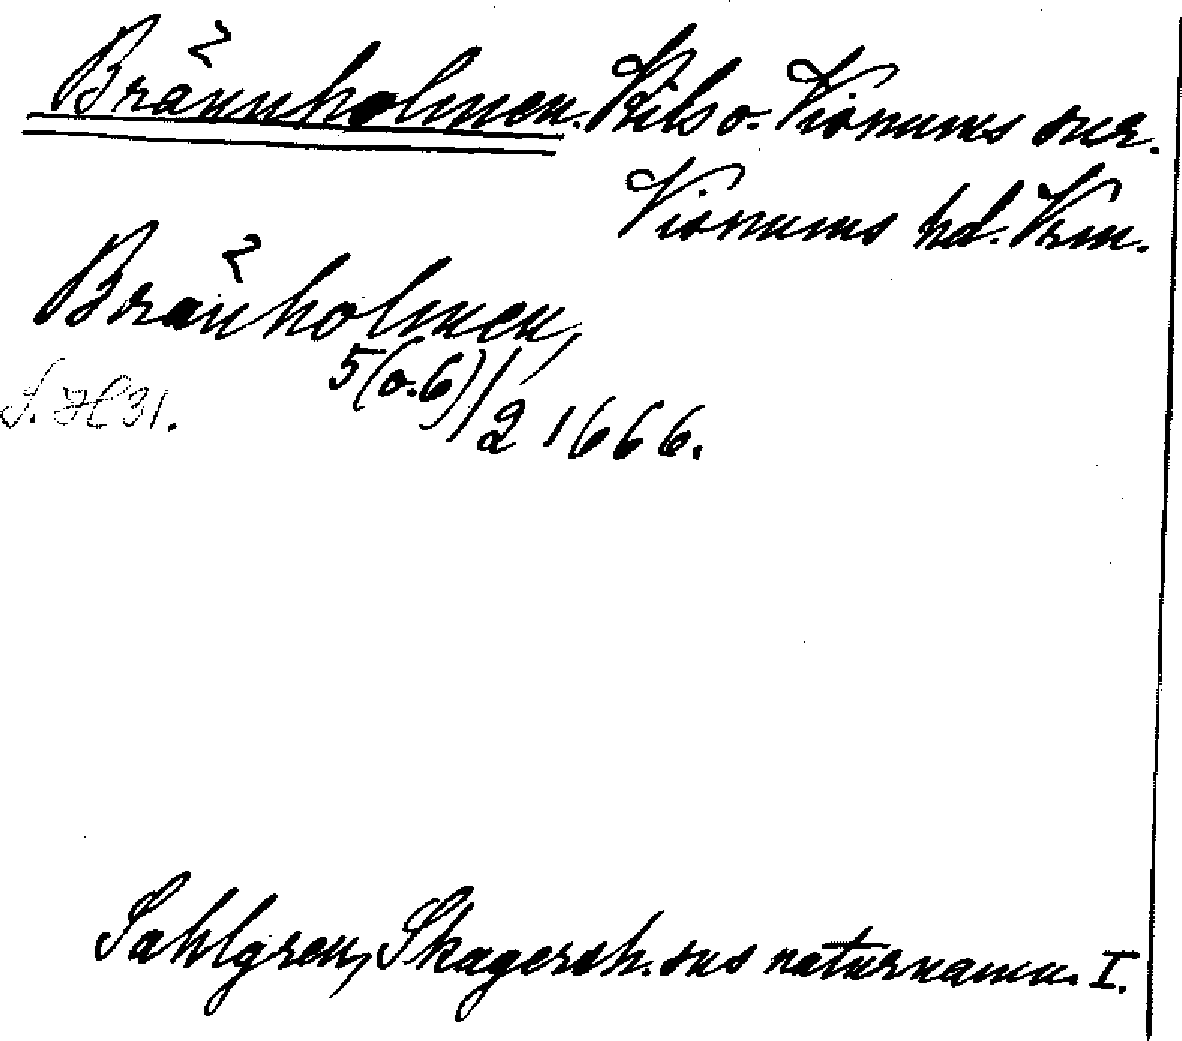 Brännholmen. Kils o. Visnums snr.
Visnums hd. Vrm.
Bränholmen,
5(o.6)/2 1666.
S. H 31.
Sahlgren, Skagersh. sns naturnamn. I.